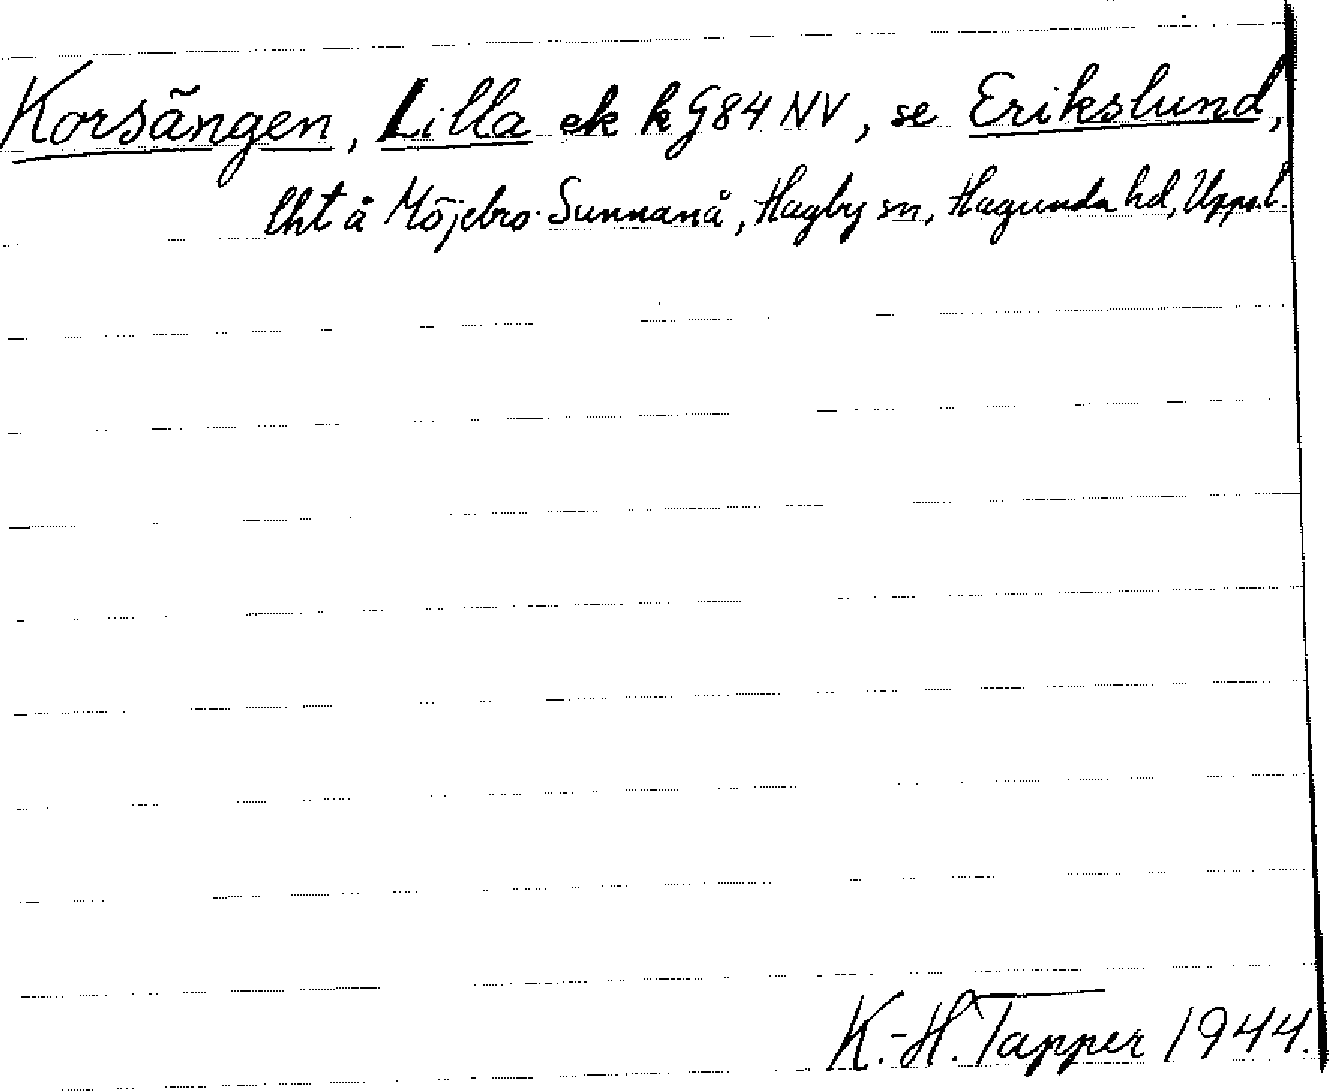 Korsängen, Lilla ek k G84 NV, se Erikslund,
lht å Möjebro-Sunnanå, Hagby sn, Hagunda hd, Upps. l.
K.-H. Tapper 1944.